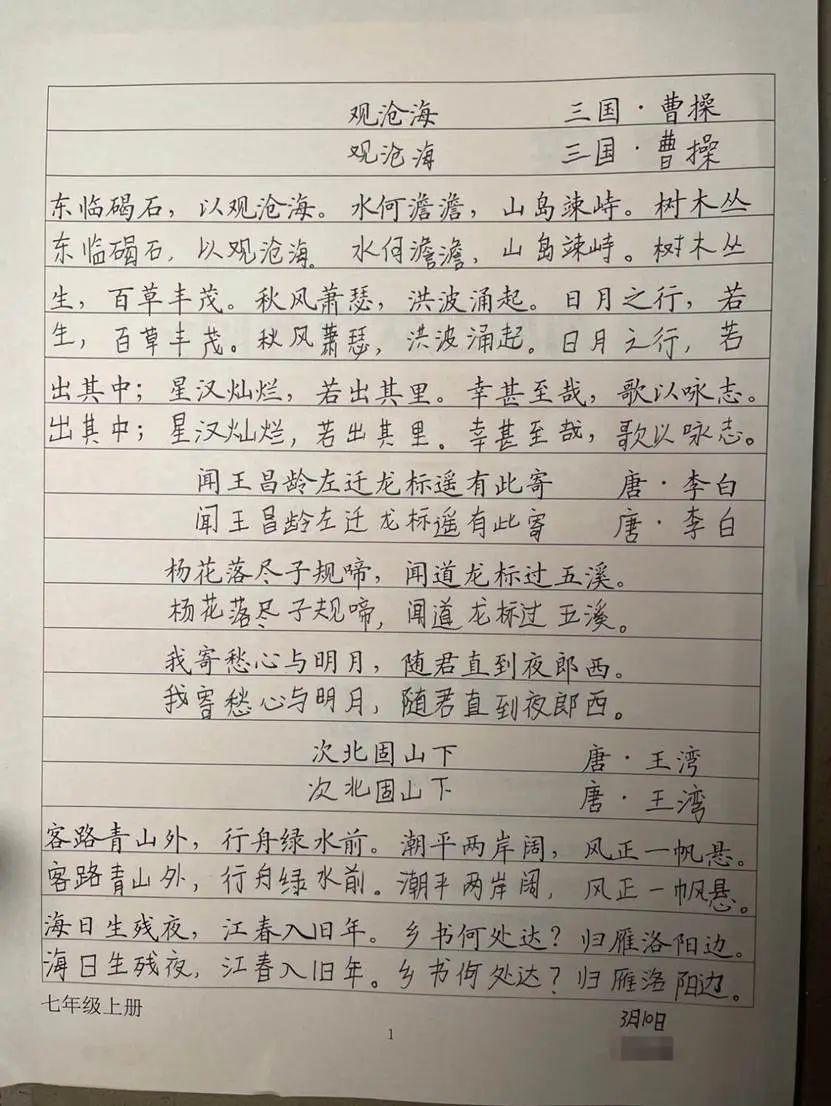 观沧海 三国·曹操
观沧海 三国·曹操
东临碣石，以观沧海。水何澹澹，山岛竦峙。树木丛
东临碣石，以观沧海。水何澹澹，山岛竦峙。树木丛
生，百草丰茂。秋风萧瑟，洪波涌起。日月之行，若
生，百草丰茂。秋风萧瑟，洪波涌起。日月之行，若
出其中；星汉灿烂，若出其里。幸甚至哉，歌以咏志。
出其中；星汉灿烂，若出其里。幸甚至哉，歌以咏志。
闻王昌龄左迁龙标遥有此寄 唐·李白
闻王昌龄左迁龙标遥有此寄 唐·李白
杨花落尽子规啼，闻道龙标过五溪。
杨花落尽子规啼，闻道龙标过五溪。
我寄愁心与明月，随君直到夜郎西。
我寄愁心与明月，随君直到夜郎西。
次北固山下 唐·王湾
次北固山下 唐·王湾
客路青山外，行舟绿水前。潮平两岸阔，风正一帆悬。
客路青山外，行舟绿水前。潮平两岸阔，风正一帆悬。
海日生残夜，江春入旧年。乡书何处达？归雁洛阳边。
海日生残夜，江春入旧年。乡书何处达？归雁洛阳边。
七年级上册
3月10日
1